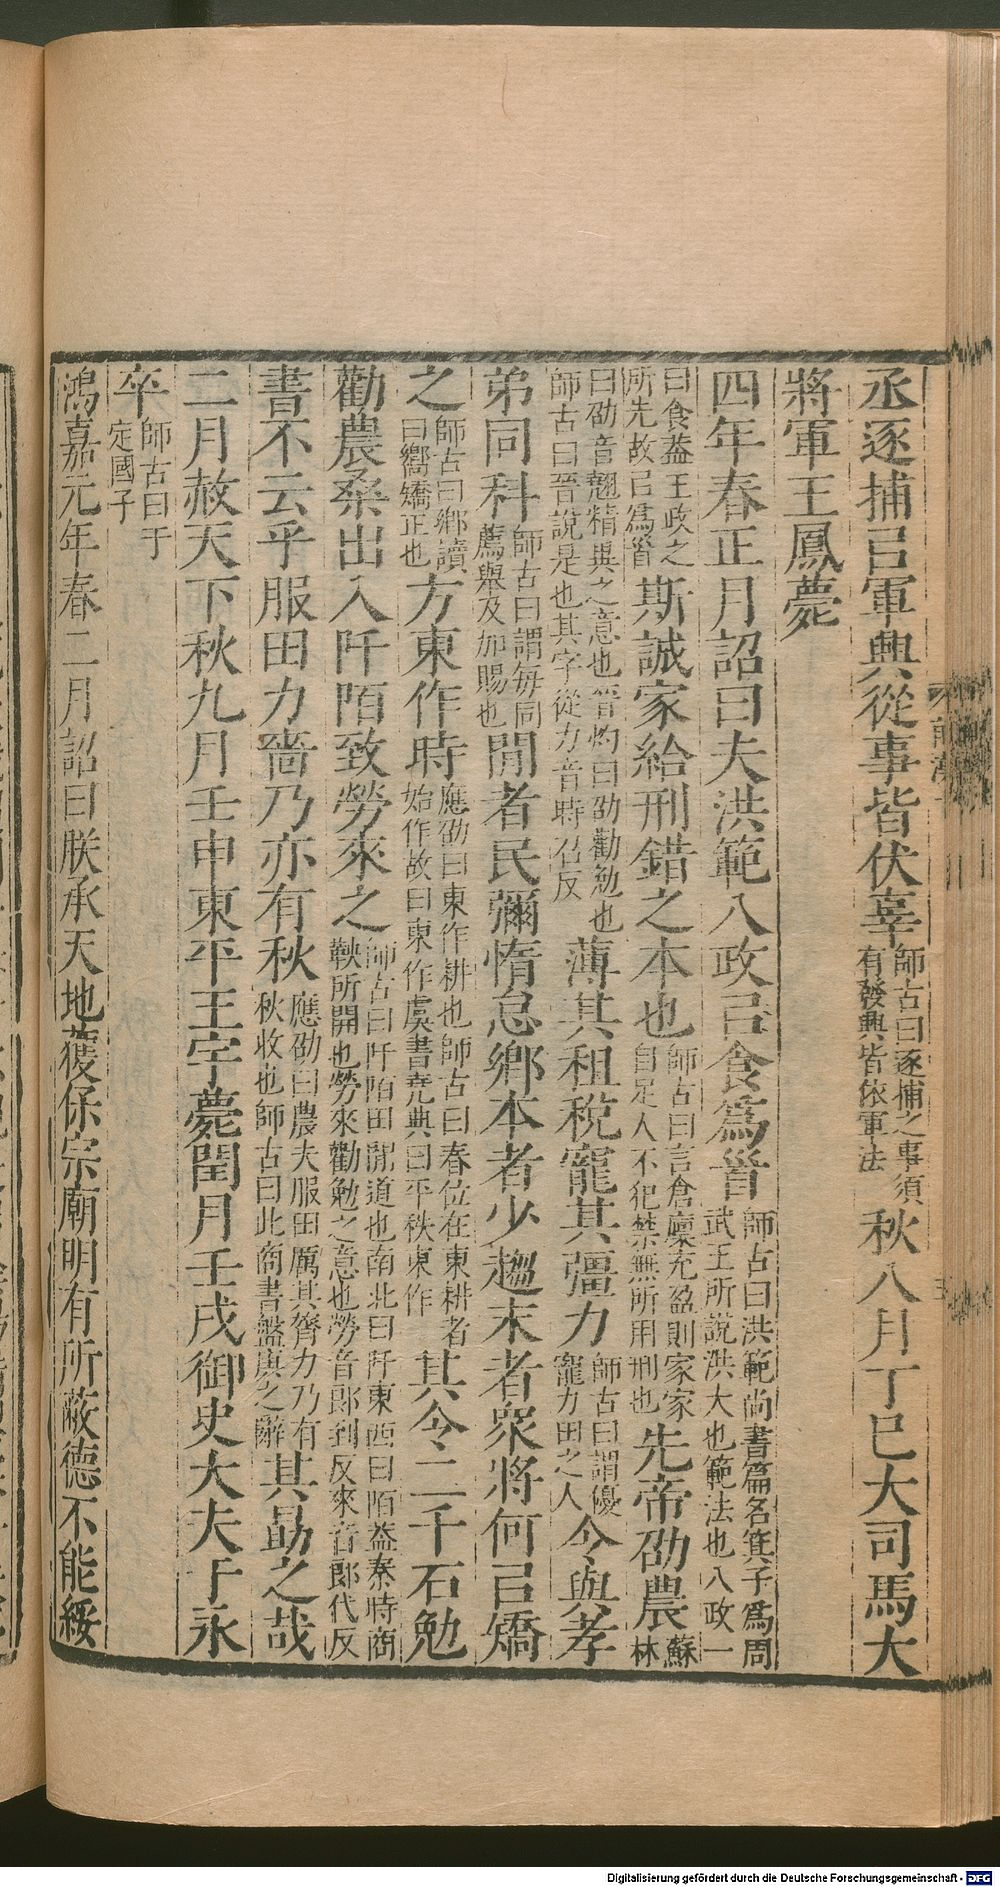 丞逐捕㠯軍興從事皆伏辜師古曰逐捕之事須有發興皆依軍法秋八月丁巳大司馬大
將軍王鳳薨
四年春正月詔曰夫洪範八政㠯食爲首師古曰洪範尚書篇名箕子爲周武王所說洪大也範法也八政一
曰食蓋王政之所先故㠯爲首斯誠家給刑錯之本也師古曰言倉廩充盈則家家自足人不犯禁無所用刑也先帝劭農蘇林
曰劭音翹精異之意也晉灼曰劭勸勉也師古曰晉說是也其字從力音時召反薄其租稅寵其彊力師古曰謂優寵力田之人令與孝
弟同科師古曰謂每同薦舉及加賜也閒者民彌惰怠鄉本者少趨末者衆將何㠯矯
之師古曰鄉讀曰嚮矯正也方東作時應劭曰東作耕也師古曰春位在東耕者始作故曰東作虞書堯典曰平秩東作其令二千石勉
勸農桑出入阡陌致勞來之師古曰阡陌田閒道也南北曰阡東西曰陌蓋秦時商鞅所開也勞來勸勉之意也勞音郎到反來音郎代反
書不云乎服田力嗇乃亦有秋應劭曰農夫服田厲其膂力乃有秋收也師古曰此商書盤庚之辭其勗之哉
二月赦天下秋九月壬申東平王宇薨閏月壬戌御史大夫于永
卒師古曰于定國子
鴻嘉元年春二月詔曰朕承天地獲保宗廟明有所蔽德不能綏
Digitalisierung gefördert durch die Deutsche Forschungsgemeinschaft - DFG